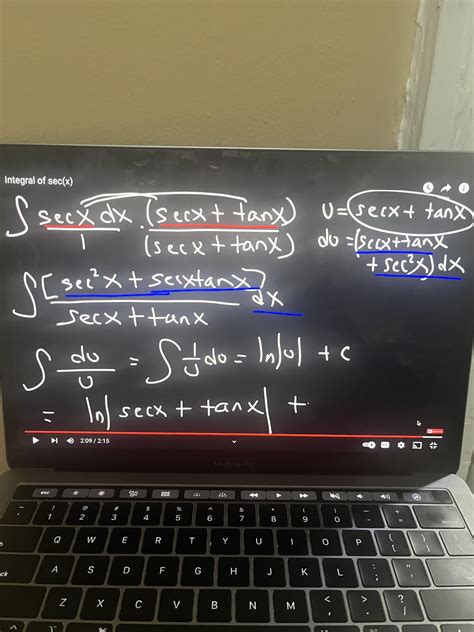 Integral of sec(x)
∫ secx dx/1 · (secx + tanx)/(secx + tanx)
u = secx + tanx
du = (secx+tanx
+ sec²x) dx
∫ [sec²x + secxtanx]/secx + tanx dx
∫ du/u = ∫ 1/u du = ln|u| + c
= ln|secx + tanx| +
2:09 / 2:15
MacBook Pro
esc
! @ # $ % ^ & * ( ) _ +
1 2 3 4 5 6 7 8 9 0 - =
Q W E R T Y U I O P { }
[ ]
A S D F G H J K L : "
; '
Z X C V B N M < > ?
, . /